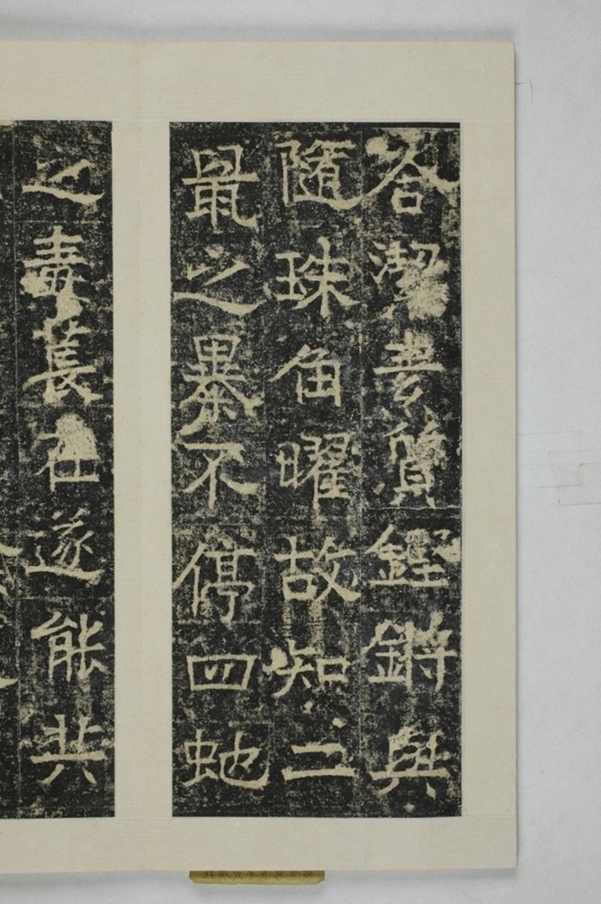 合潔孝質鏗鏘與
隨珠角曜故知二
鼠之暴不停四虵
之毒萇在遂能共